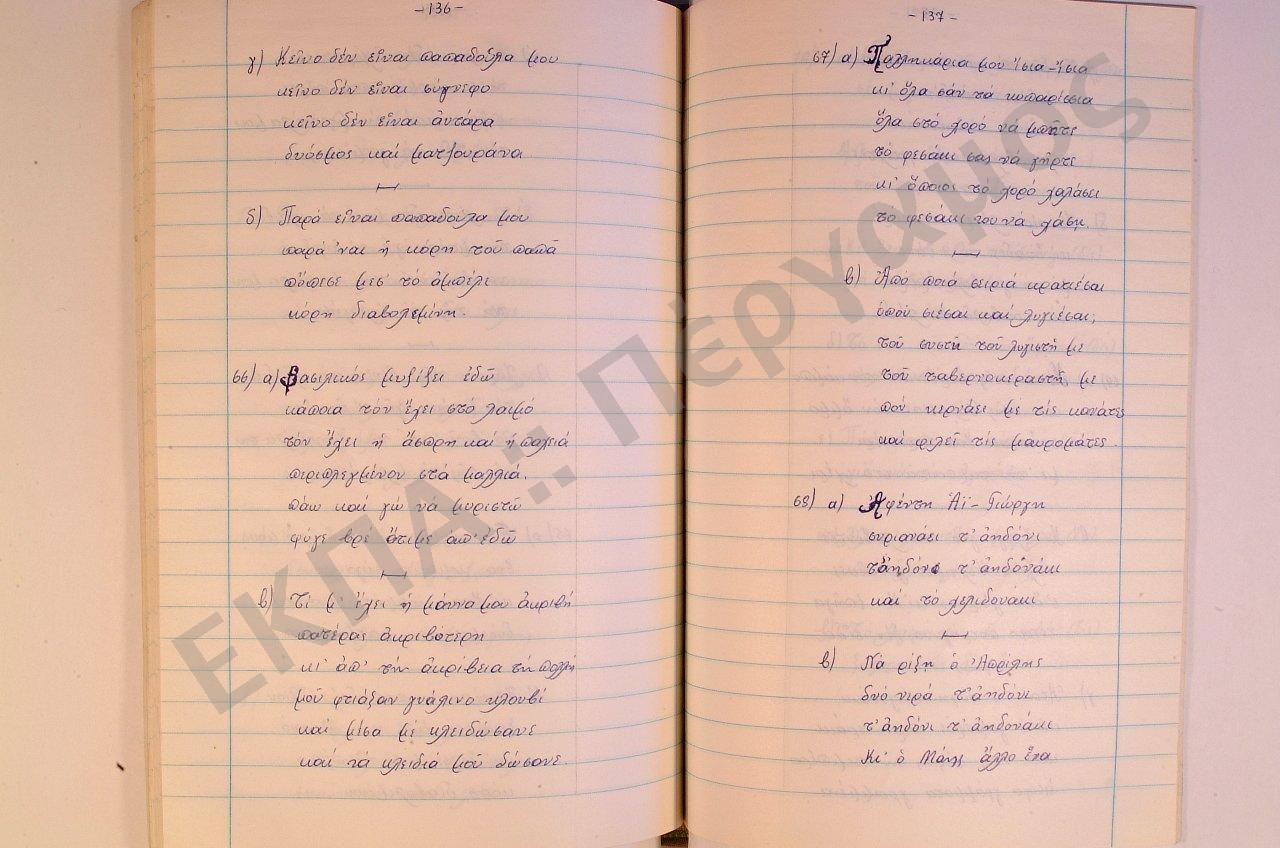 -136-
γ) Κεῖνο δέν εἶναι παπαδούλα μου
κεῖνο δέν εἶναι σύγνεφο
κεῖνο δέν εἶναι ἀντάρα
δυόσμος καί ματζουράνα
δ) Παρά εἶναι παπαδούλα μου
παρά 'ναι ἡ κόρη τοῦ παπᾶ
πὄπεσε μεσ' τό ἀμπέλι
κόρη διαβολεμένη.
66) α) Βασιλικός μυρίζει ἐδῶ
κάποια τόν ἔχει στό λαιμό
τόν ἔχει ἡ ἄσπρη καί ἡ παλειά
περιπλεγμένον στά μαλλιά.
πάω καί γώ νά μυριστῶ
φύγε βρέ ἄτιμε ἀπ' ἐδῶ
β) Τί μ' ἔχει ἡ μάννα μου ἀκριβή
πατέρας ἀκριβότερη
κι' ἀπ' τήν ἀκρίβεια τή πολλή
μοῦ φτιάξαν γυάλινο κλουβί
καί μέσα μέ κλειδώσανε
καί τά κλειδιά μοῦ δώσανε
-137-
67) α) Παλληκάρια μου ἴσια-ἴσια
κι' ὅλα σάν τά κυπαρίσσια
ὅλα στό χορό νά μπῆτε
τό φεσάκι σας νά γῆρτε
κι' ὅποιος τό χορό χαλάσει
τό φεσάκι του νά χάση.
β) Ἀπό ποιά σειριά κρατιέσαι
ὁπού σιέσαι καί λυγιέσαι;
τοῦ συστῆ τοῦ λυγιστῆ με
τοῦ ταβερνοκεραστῆ με
πού κερνάει μέ τίς κανάτες
καί φιλεῖ τίς μαυρομάτες.
68) α) Ἀφέντη Ἁϊ-Γιώργη
συριανάει τ' ἀηδόνι
τἀηδόνι τ' ἀηδονάκι
καί τό χελιδονάκι
β) Νά ρίξη ὁ Ἀπρίλης
δυό νερά τ' ἀηδόνι
τ' ἀηδόνι τ' ἀηδονάκι
Κι' ὁ Μάης ἄλλο ἕνα
ΕΚΠΑ :: Πέργαμος